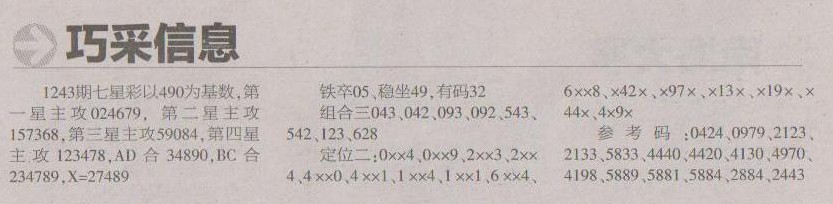 巧采信息
1243期七星彩以490为基数,第
一星主攻024679, 第二星主攻
157368,第三星主攻59084,第四星
主攻 123478,AD 合 34890,BC 合
234789,X=27489
铁卒05、稳坐49,有码32
组合三043、042、093、092、543、
542、123、628
定位二:0××4、0××9、2××3、2××
4、4××0、4××1、1××4、1××1、6××4、
6××8、×42×、×97×、×13×、×19×、×
44×、4×9×
参考码:0424、0979、2123、
2133、5833、4440、4420、4130、4970、
4198、5889、5881、5884、2884、2443